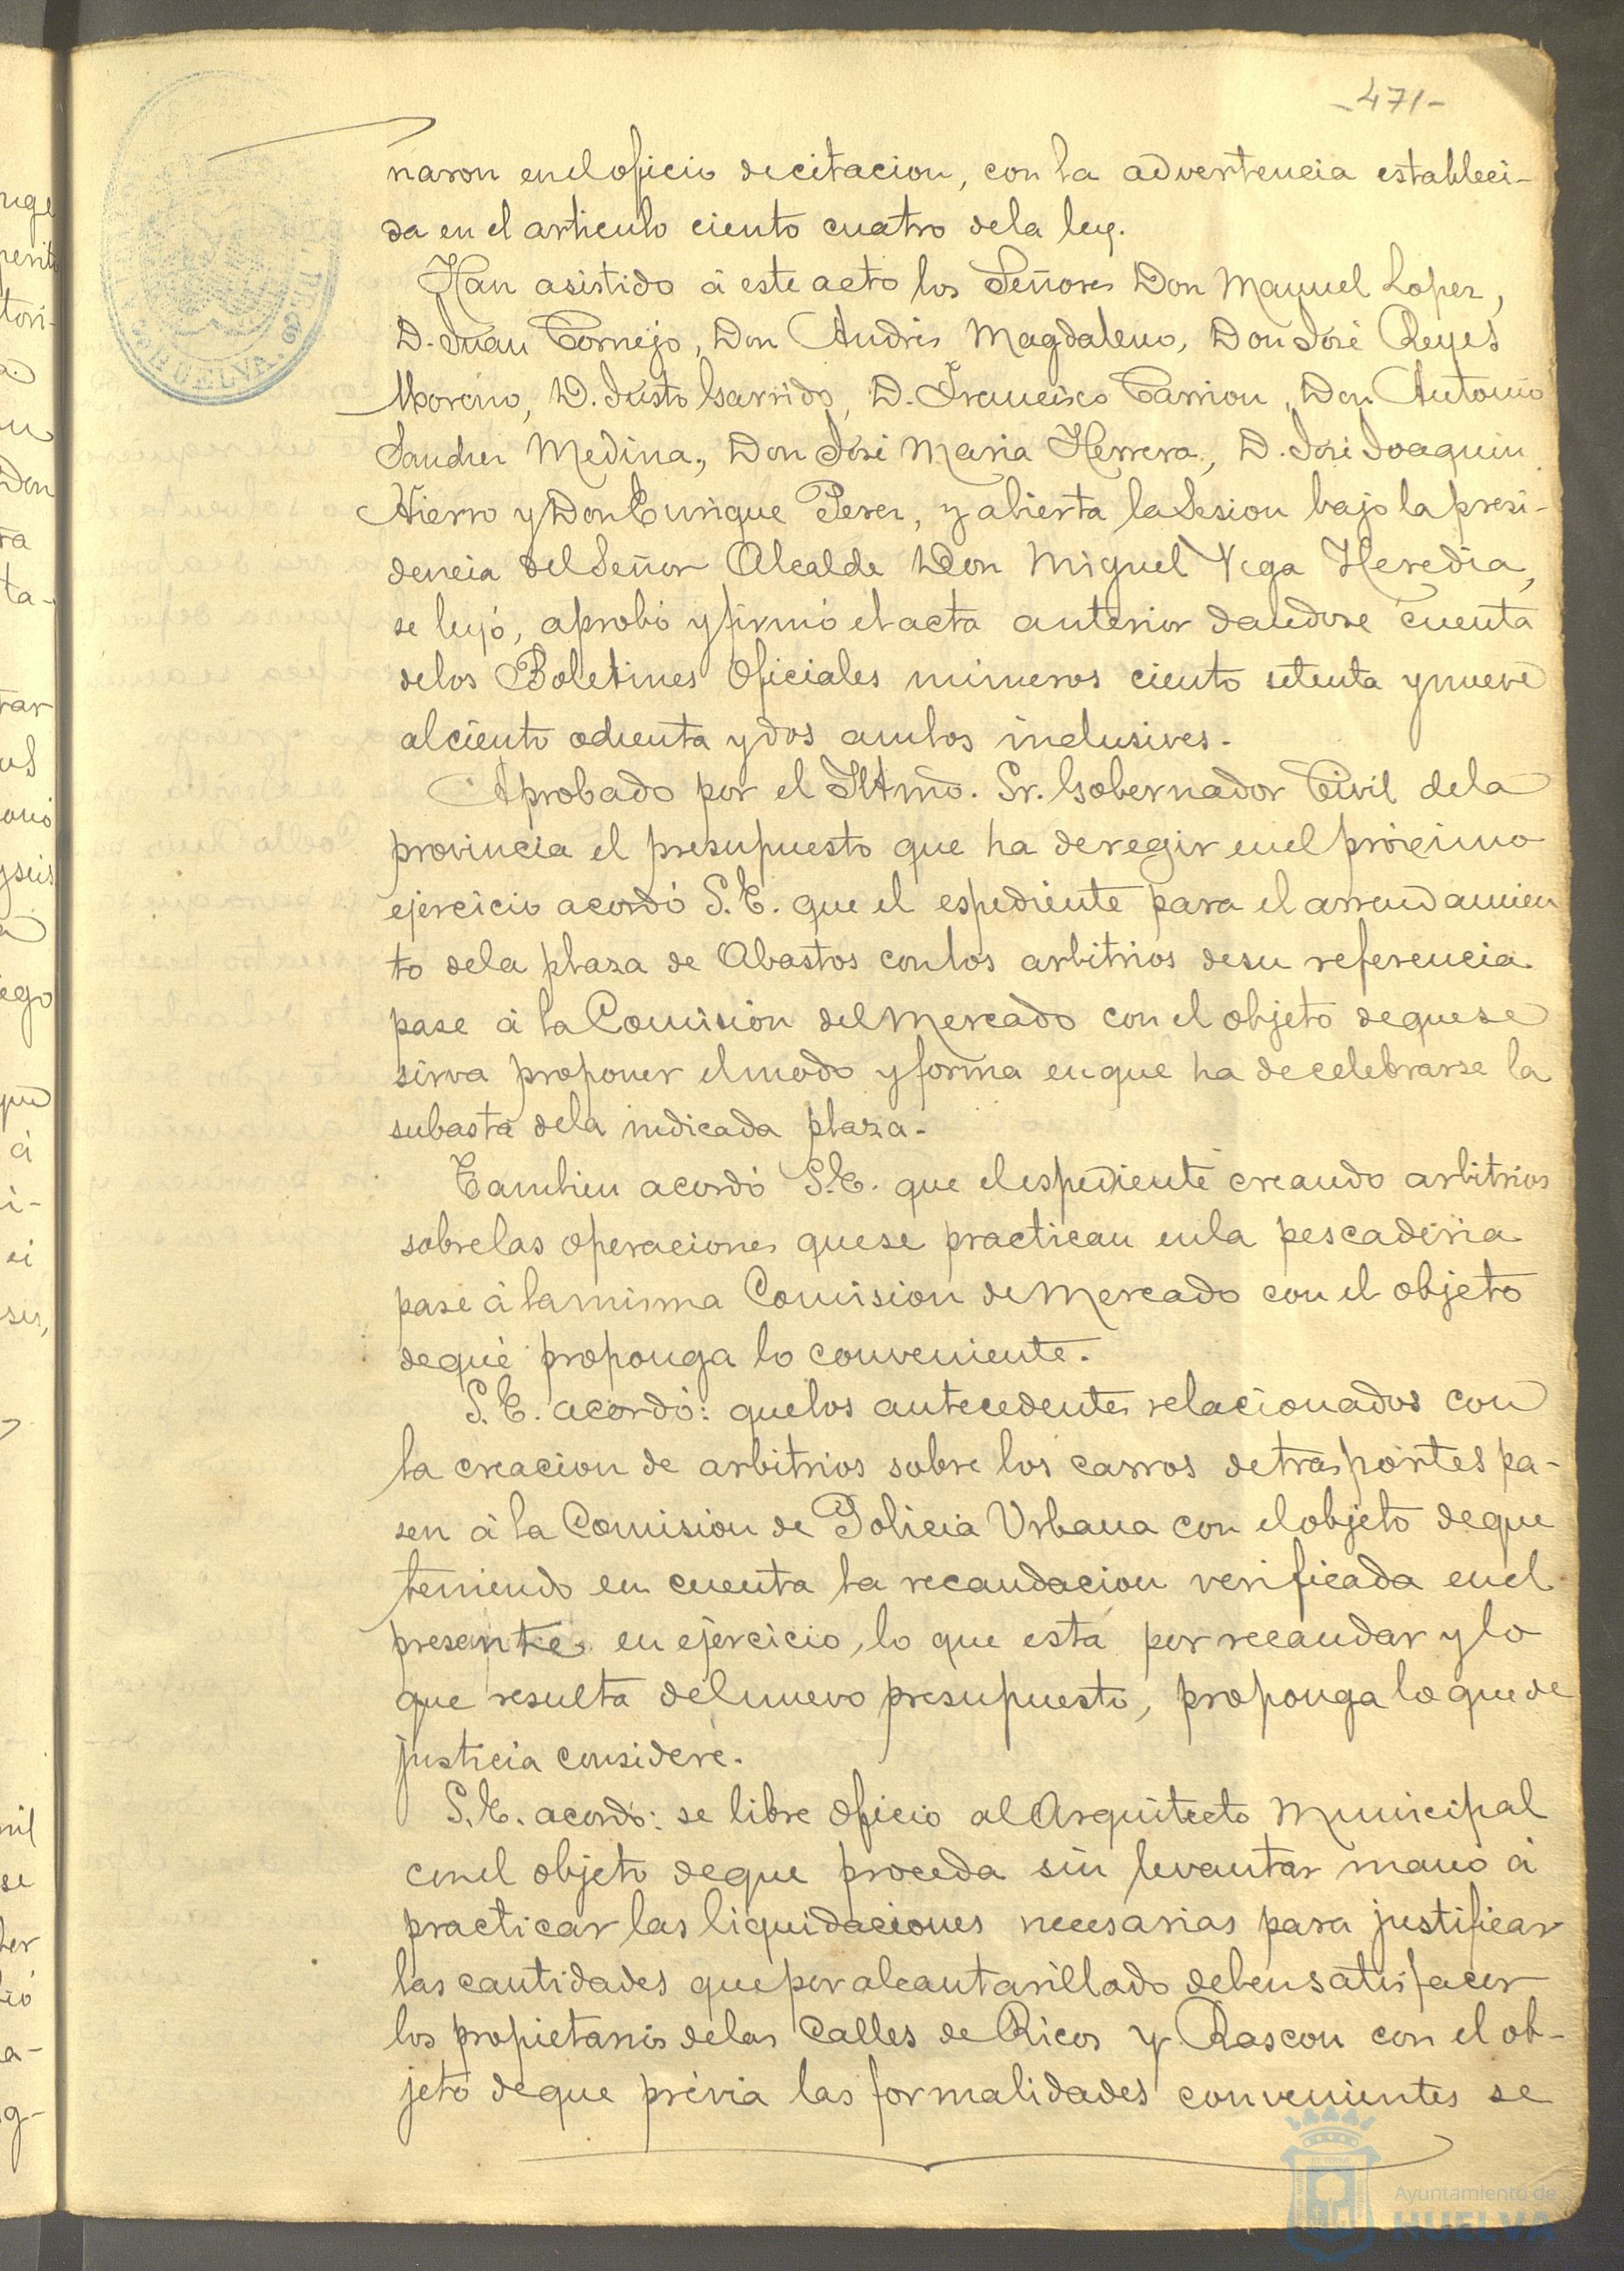 -471-
naron en el oficio de citacion, con la advertencia estableci-
da en el articulo ciento cuatro de la ley.
Han asistido á este acto los Señores Don Manuel Lopez,
D. Juan Cornejo, Don Andrés Magdaleno, Don José Reyes
Moreno, D. Justo Garrido, D. Francisco Carrion, Don Antonio
Sanchez Medina, Don José Maria Herrera, D. José Joaquin
Hierro y Don Enrique Perez, y abierta la Sesion bajo la presi-
dencia del Señor Alcalde Don Miguel Vega Heredia,
se leyó, aprobó y firmó el acta anterior dandose cuenta
de los Boletines Oficiales números ciento setenta y nueve
al ciento ochenta y dos ambos inclusives.
Aprobado por el Iltmo. Sr. Gobernador Civil de la
provincia el presupuesto que ha de regir en el próximo
ejercicio acordó S.E. que el espediente para el arrendamien
to de la plaza de Abastos con los arbitrios de su referencia
pase á la Comisión del Mercado con el objeto de que se
sirva proponer el modo y forma en que ha de celebrarse la
subasta de la indicada plaza.
Tambien acordó S.E. que el espediente creando arbitrios
sobre las operaciones que se practican en la pescaderia
pase á la misma Comision de Mercado con el objeto
de que proponga lo conveniente.
S.E. acordó: que los antecedentes relacionados con
la creacion de arbitrios sobre los carros de trasportes pa-
sen á la Comision de Policia Urbana con el objeto de que
teniendo en cuenta la recaudacion verificada en el
presente en ejercicio, lo que está por recaudar y lo
que resulta del nuevo presupuesto, proponga lo que de
justicia considere.
S.E. acordó: se libre oficio al Arquitecto Municipal
con el objeto de que proceda sin levantar mano á
practicar las liquidaciones necesarias para justificar
las cantidades que por alcantarillado deben satisfacer
los propietarios de las Calles de Ricos y Rascon con el ob-
jeto de que prévia las formalidades convenientes se
HUELVA
Ayuntamiento de
HUELVA